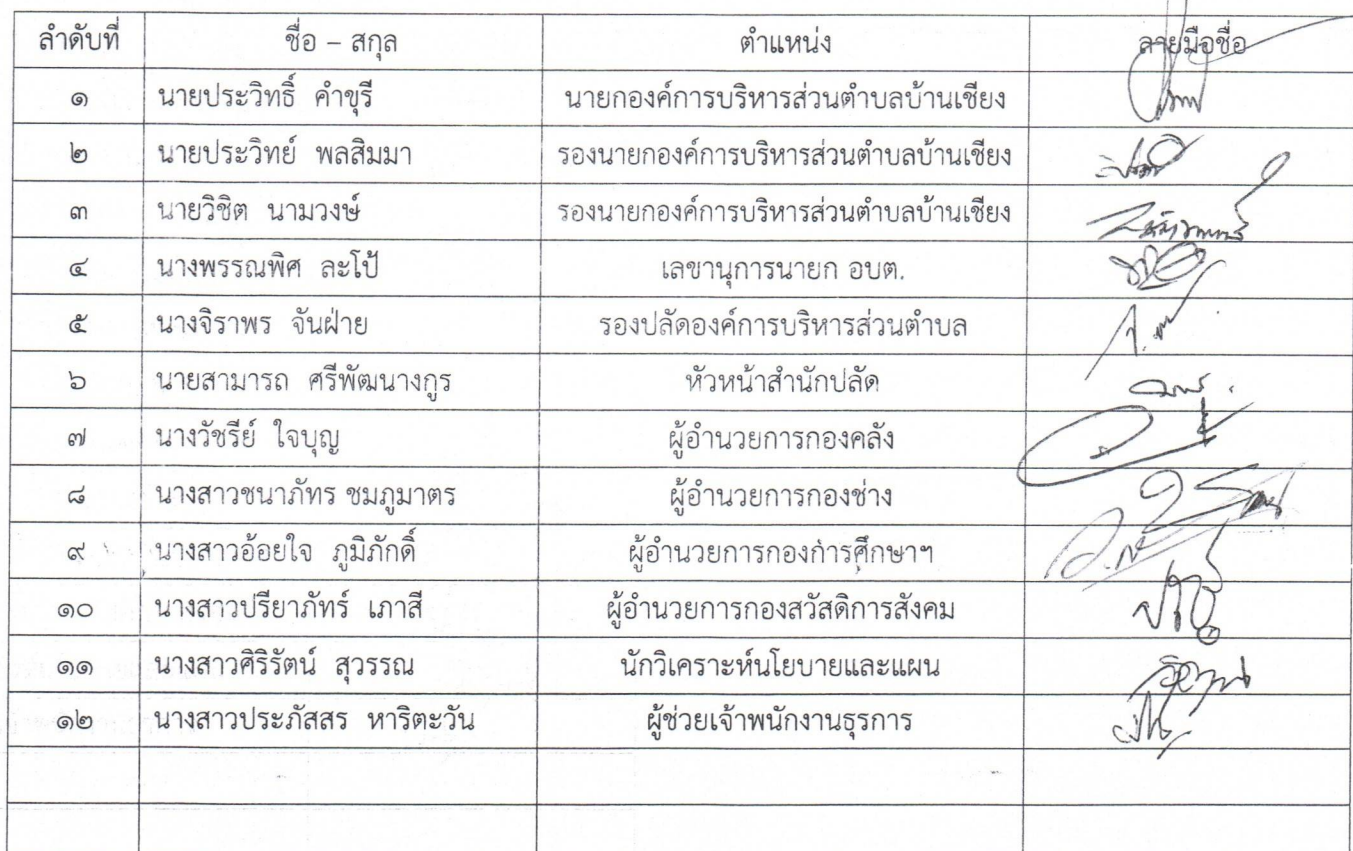 ลำดับที่ ชื่อ – สกุล ตำแหน่ง ลายมือชื่อ
๑ นายประวิทธิ์ คำขุรี นายกองค์การบริหารส่วนตำบลบ้านเชียง
๒ นายประวิทย์ พลสิมมา รองนายกองค์การบริหารส่วนตำบลบ้านเชียง
๓ นายวิชิต นามวงษ์ รองนายกองค์การบริหารส่วนตำบลบ้านเชียง
๔ นางพรรณพิศ ละโป้ เลขานุการนายก อบต.
๕ นางจิราพร จันฝ่าย รองปลัดองค์การบริหารส่วนตำบล
๖ นายสามารถ ศรีพัฒนางกูร หัวหน้าสำนักปลัด
๗ นางวัชรีย์ ใจบุญ ผู้อำนวยการกองคลัง
๘ นางสาวชนาภัทร ชมภูมาตร ผู้อำนวยการกองช่าง
๙ นางสาวอ้อยใจ ภูมิภักดิ์ ผู้อำนวยการกองการศึกษาฯ
๑๐ นางสาวปรียาภัทร์ เภาสี ผู้อำนวยการกองสวัสดิการสังคม
๑๑ นางสาวศิริรัตน์ สุวรรณ นักวิเคราะห์นโยบายและแผน
๑๒ นางสาวประภัสสร หาริตะวัน ผู้ช่วยเจ้าพนักงานธุรการ